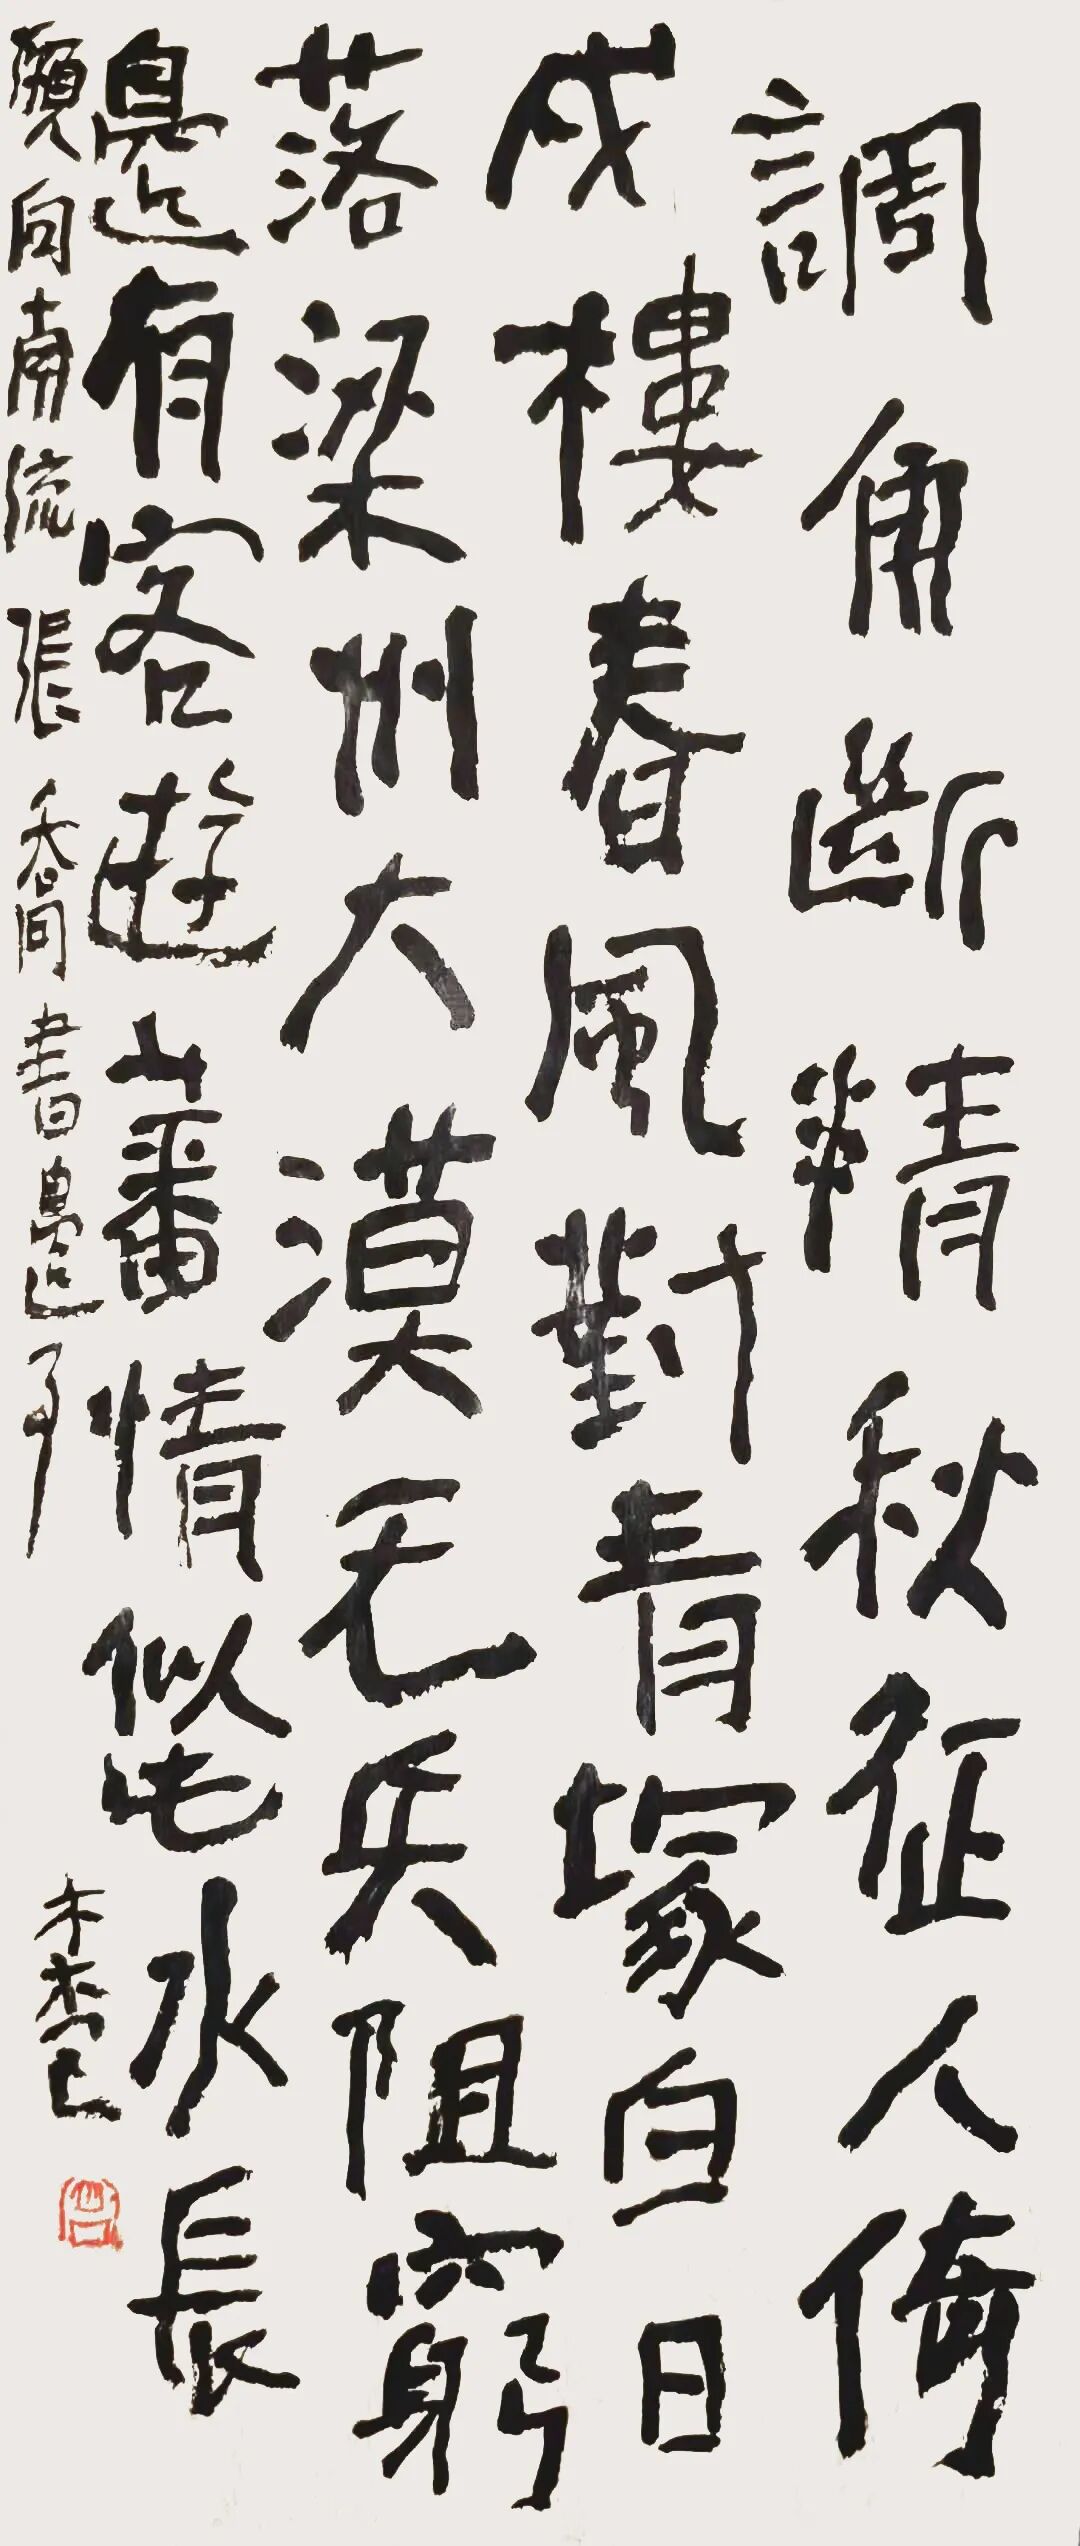 調角斷精秋征人倚
戍樓春風對青塚白日
落梁州大漠无兵阻窮
邊有客遊蕃情似此水長
願向南流 張喬書邊事